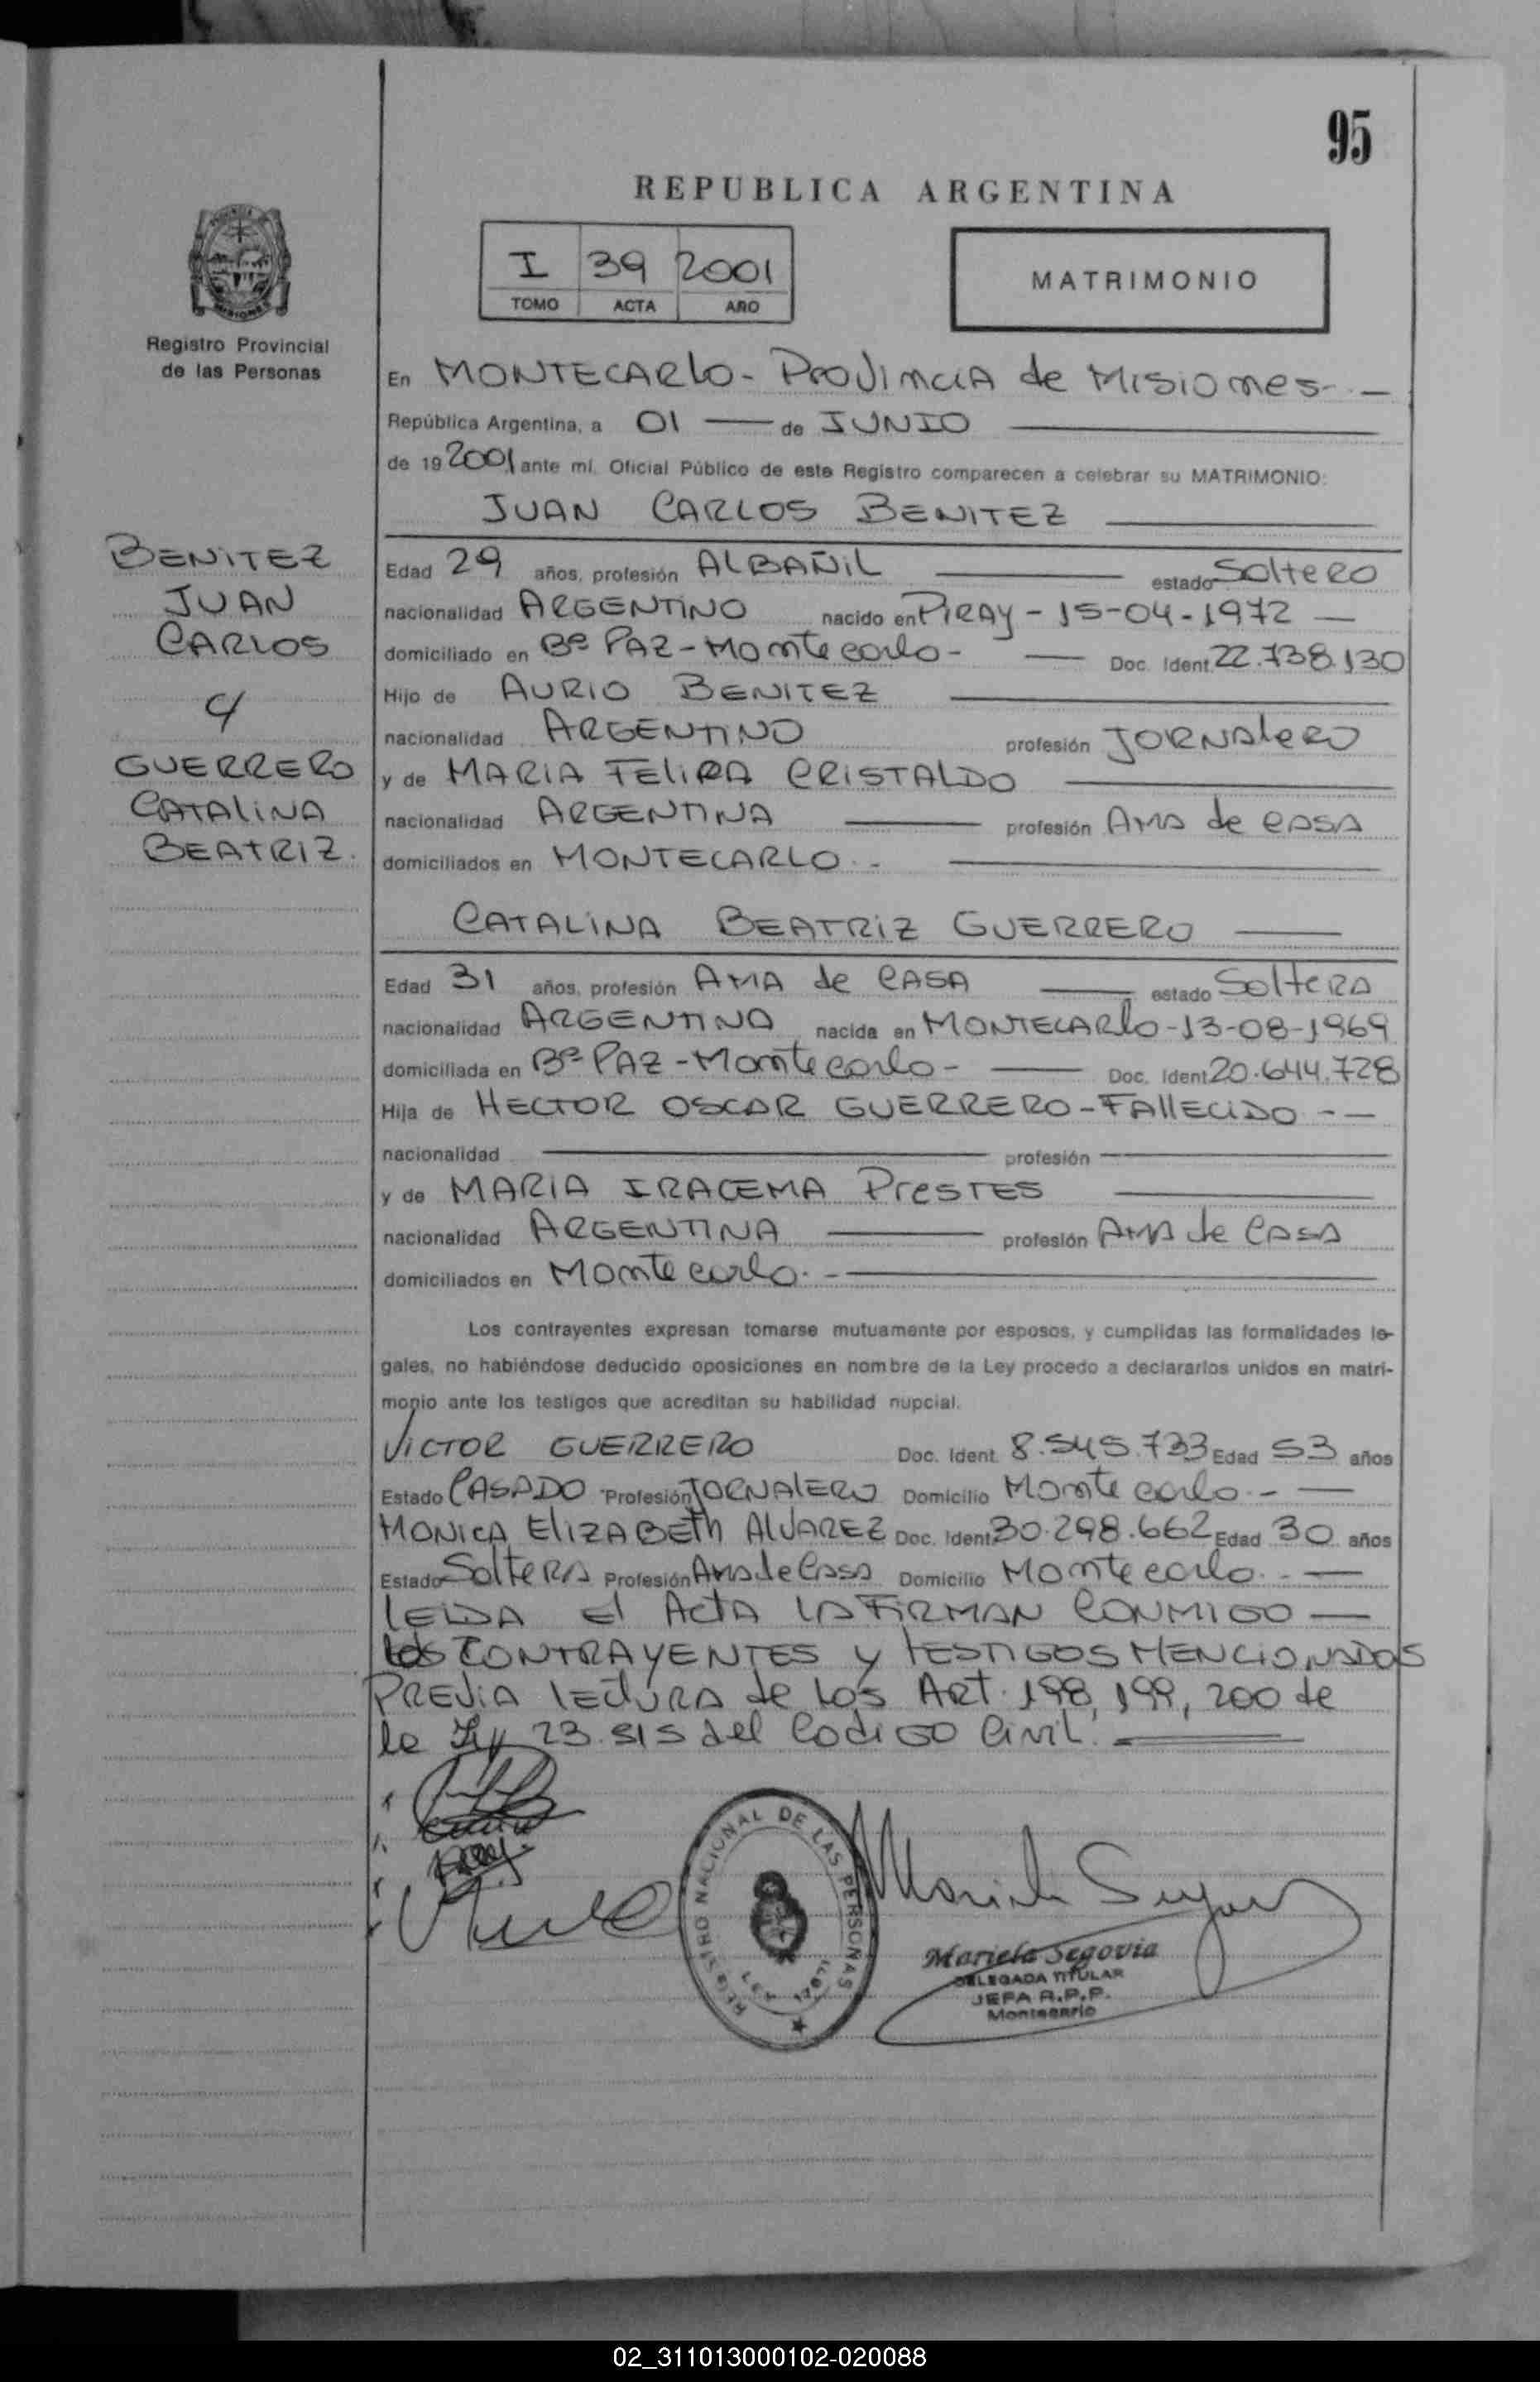 95
REPUBLICA ARGENTINA
I 39 2001
TOMO ACTA AÑO
MATRIMONIO
Registro Provincial
de las Personas
En MONTECARLO - PROVINCIA de MISIONES. -
República Argentina, a 01 — de JUNIO
de 19 2001 ante mí, Oficial Público de este Registro comparecen a celebrar su MATRIMONIO:
JUAN CARLOS BENITEZ
BENITEZ
JUAN
CARLOS
y
GUERRERO
CATALINA
BEATRIZ.
Edad 29 años, profesión ALBAÑIL estado SOLTERO
nacionalidad ARGENTINO nacido en PIRAY - 15-04-1972 —
domiciliado en Bº PAZ - Montecarlo - — Doc. Ident. 22.738.130
Hijo de AURIO BENITEZ
nacionalidad ARGENTINO profesión JORNALERO
y de MARIA FELIPA CRISTALDO
nacionalidad ARGENTINA profesión AMA de CASA
domiciliados en MONTECARLO. -
CATALINA BEATRIZ GUERRERO
Edad 31 años, profesión AMA de CASA estado SOLTERA
nacionalidad ARGENTINA nacida en MONTECARLO - 13-08-1969
domiciliada en Bº PAZ - Montecarlo - — Doc. Ident. 20.644.728
Hija de HECTOR OSCAR GUERRERO - FALLECIDO - —
nacionalidad — profesión —
y de MARIA IRACEMA PRESTES
nacionalidad ARGENTINA profesión AMA de CASA
domiciliados en Montecarlo. -
Los contrayentes expresan tomarse mutuamente por esposos, y cumplidas las formalidades le-
gales, no habiéndose deducido oposiciones en nombre de la Ley procedo a declararlos unidos en matri-
monio ante los testigos que acreditan su habilidad nupcial.
VICTOR GUERRERO Doc. Ident. 8.545.733 Edad 53 años
Estado CASADO Profesión JORNALERO Domicilio Montecarlo. - —
MONICA ELIZABETH ALVAREZ Doc. Ident. 30.298.662 Edad 30 años
Estado SOLTERA Profesión Ama de Casa Domicilio Montecarlo. - —
LEIDA El ACTA LA FIRMAN CONMIGO —
los CONTRAYENTES y TESTIGOS MENCIONADOS
PREVIA LECTURA de los ART. 198, 199, 200 de
la Ley 23.515 del Codigo Civil.
REGISTRO NACIONAL DE LAS PERSONAS
LEY
Mariela Segovia
DELEGADA TITULAR
JEFA R.P.P.
Montecarlo
02_311013000102-020088